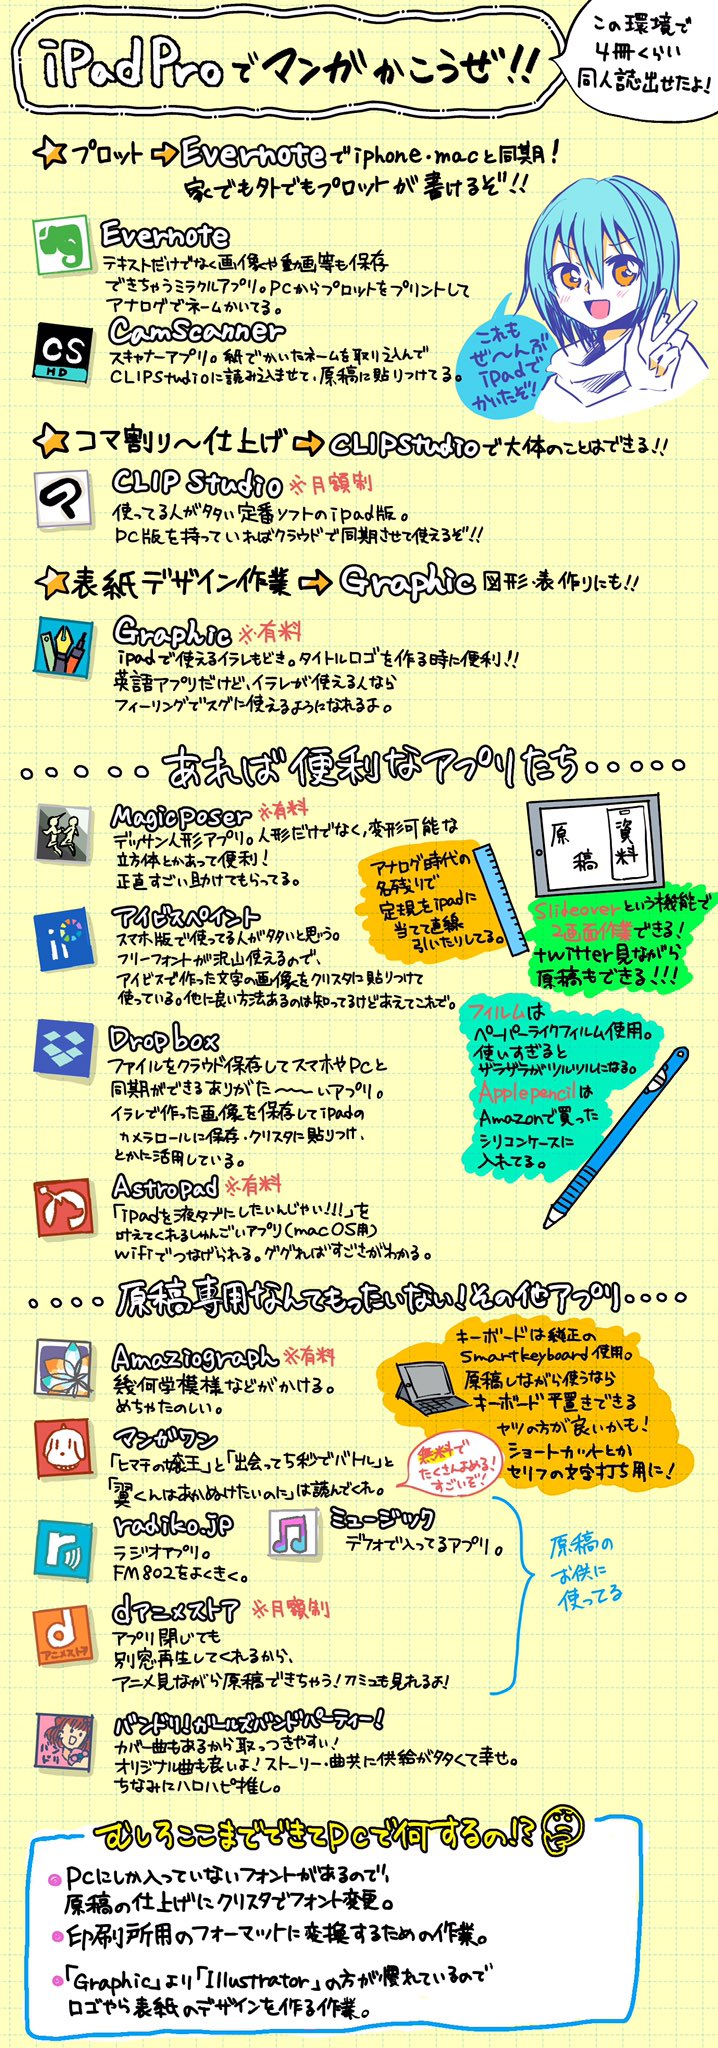 iPadProでマンガかこうぜ!!
この環境で
4冊くらい
同人誌出せたよ!
プロット→Evernoteでiphone・macと同期!
家でも外でもプロットが書けるぞ!!
Evernote
テキストだけでなく画像や動画等も保存
できちゃうミラクルアプリ。PCからプロットをプリントして
アナログでネームかいてる。
CS
HD
CamScanner
スキャナーアプリ。紙でかいたネームを取り込んで
CLIPStudioに読み込ませて、原稿に貼りつけてる。
これも
ぜ〜んぶ
iPadで
かいたぞ!
コマ割り〜仕上げ→CLIPStudioで大体のことはできる!!
CLIP Studio ※月額制
使ってる人が多い定番ソフトのipad版。
PC版を持っていればクラウドで同期させて使えるぞ!!
表紙デザイン作業→Graphic 図形・表作りにも!!
Graphic ※有料
ipadで使えるイラレもどき。タイトルロゴを作る時に便利!!
英語アプリだけど、イラレが使える人なら
フィーリングでスグに使えるようになれるよ。
・・・・・あれば便利なアプリたち・・・・・
MagicPoser ※有料
デッサン人形アプリ。人形だけでなく、変形可能な
立方体とかあって便利!
正直すごい助けてもらってる。
アナログ時代の
名残りで
定規をipadに
当てて直線
引いたりしてる。
原稿
資料
Slideoverという機能で
2画面作業できる!
twitter見ながら
原稿もできる!!!
iP
アイビスペイント
スマホ版で使ってる人が多いと思う。
フリーフォントが沢山使えるので、
アイビスで作った文字の画像をクリスタに貼りつけて
使っている。他に良い方法あるのは知ってるけどあえてこれで。
フィルムは
ペーパーライクフィルム使用。
使いすぎると
ザラザラがツルツルになる。
Applepencilは
Amazonで買った
シリコンケースに
入れてる。
Dropbox
ファイルをクラウド保存してスマホやPCと
同期ができるありがた〜〜〜いアプリ。
イラレで作った画像を保存してiPadの
カメラロールに保存・クリスタに貼りつけ、
とかに活用している。
Astropad ※有料
「iPadを液タブにしたいんじゃい!!!」を
叶えてくれるしゅんごいアプリ(macOS用)
wifiでつなげられる。ググればすごさがわかる。
・・・・原稿専用なんてもったいない!その他アプリ・・・・
Amaziograph ※有料
幾何学模様などがかける。
めちゃたのしい。
キーボードは純正の
Smartkeyboard使用。
原稿しながら使うなら
キーボード平置きできる
ヤツの方が良いかも!
ショートカットとか
セリフの文字打ち用に!
マンガワン
「ヒマチの嬢王」と「出会って5秒でバトル」と
「翼くんはあかぬけたいのに」は読んでくれ。
無料で
たくさんよめる!
すごいぞ!
r
radiko.jp
ラジオアプリ。
FM802をよくきく。
ミュージック
デフォで入ってるアプリ。
原稿の
お供に
使ってる
d
アニメストア
dアニメストア ※月額制
アプリ閉じても
別窓再生してくれるから、
アニメ見ながら原稿できちゃう!刀ミュも見れるよ!
バンドリ!
バンドリ!ガールズバンドパーティー!
カバー曲もあるから取っつきやすい!
オリジナル曲も良いよ!ストーリー・曲共に供給が多くて幸せ。
ちなみにハロハピ推し。
むしろここまでできてPCで何するの!?
PCにしか入っていないフォントがあるので、
原稿の仕上げにクリスタでフォント変更。
印刷所用のフォーマットに変換するための作業。
「Graphic」より「Illustrator」の方が慣れているので
ロゴやら表紙のデザインを作る作業。